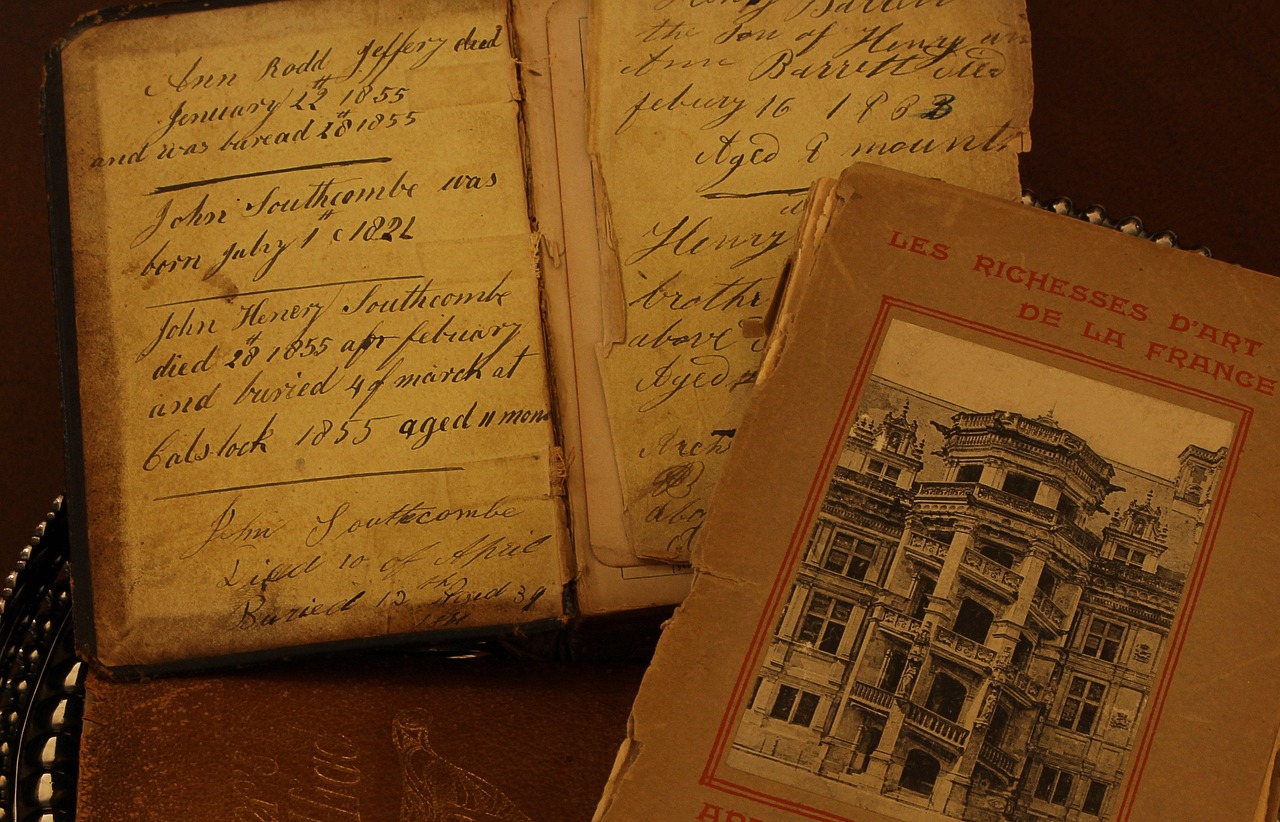 Ann Rodd Jeffery died
Jenuary 22th 1855
and was buread 28th 1855
John Southcombe was
born jabry 1th 1821
John Henery Southcombe
died 28th 1855 apr febuary
and buried 4 of march at
Calstock 1855 aged 11 mon
John Southcombe
Died 10 of April
Buried 13th Aged 39
Henry Barrett
the Son of Henry
Ann Barrett died
febury 16 1883
Aged 8 mounts
Henry
brothe
above
Aged
abo
LES RICHESSES D'ART
DE LA FRANCE